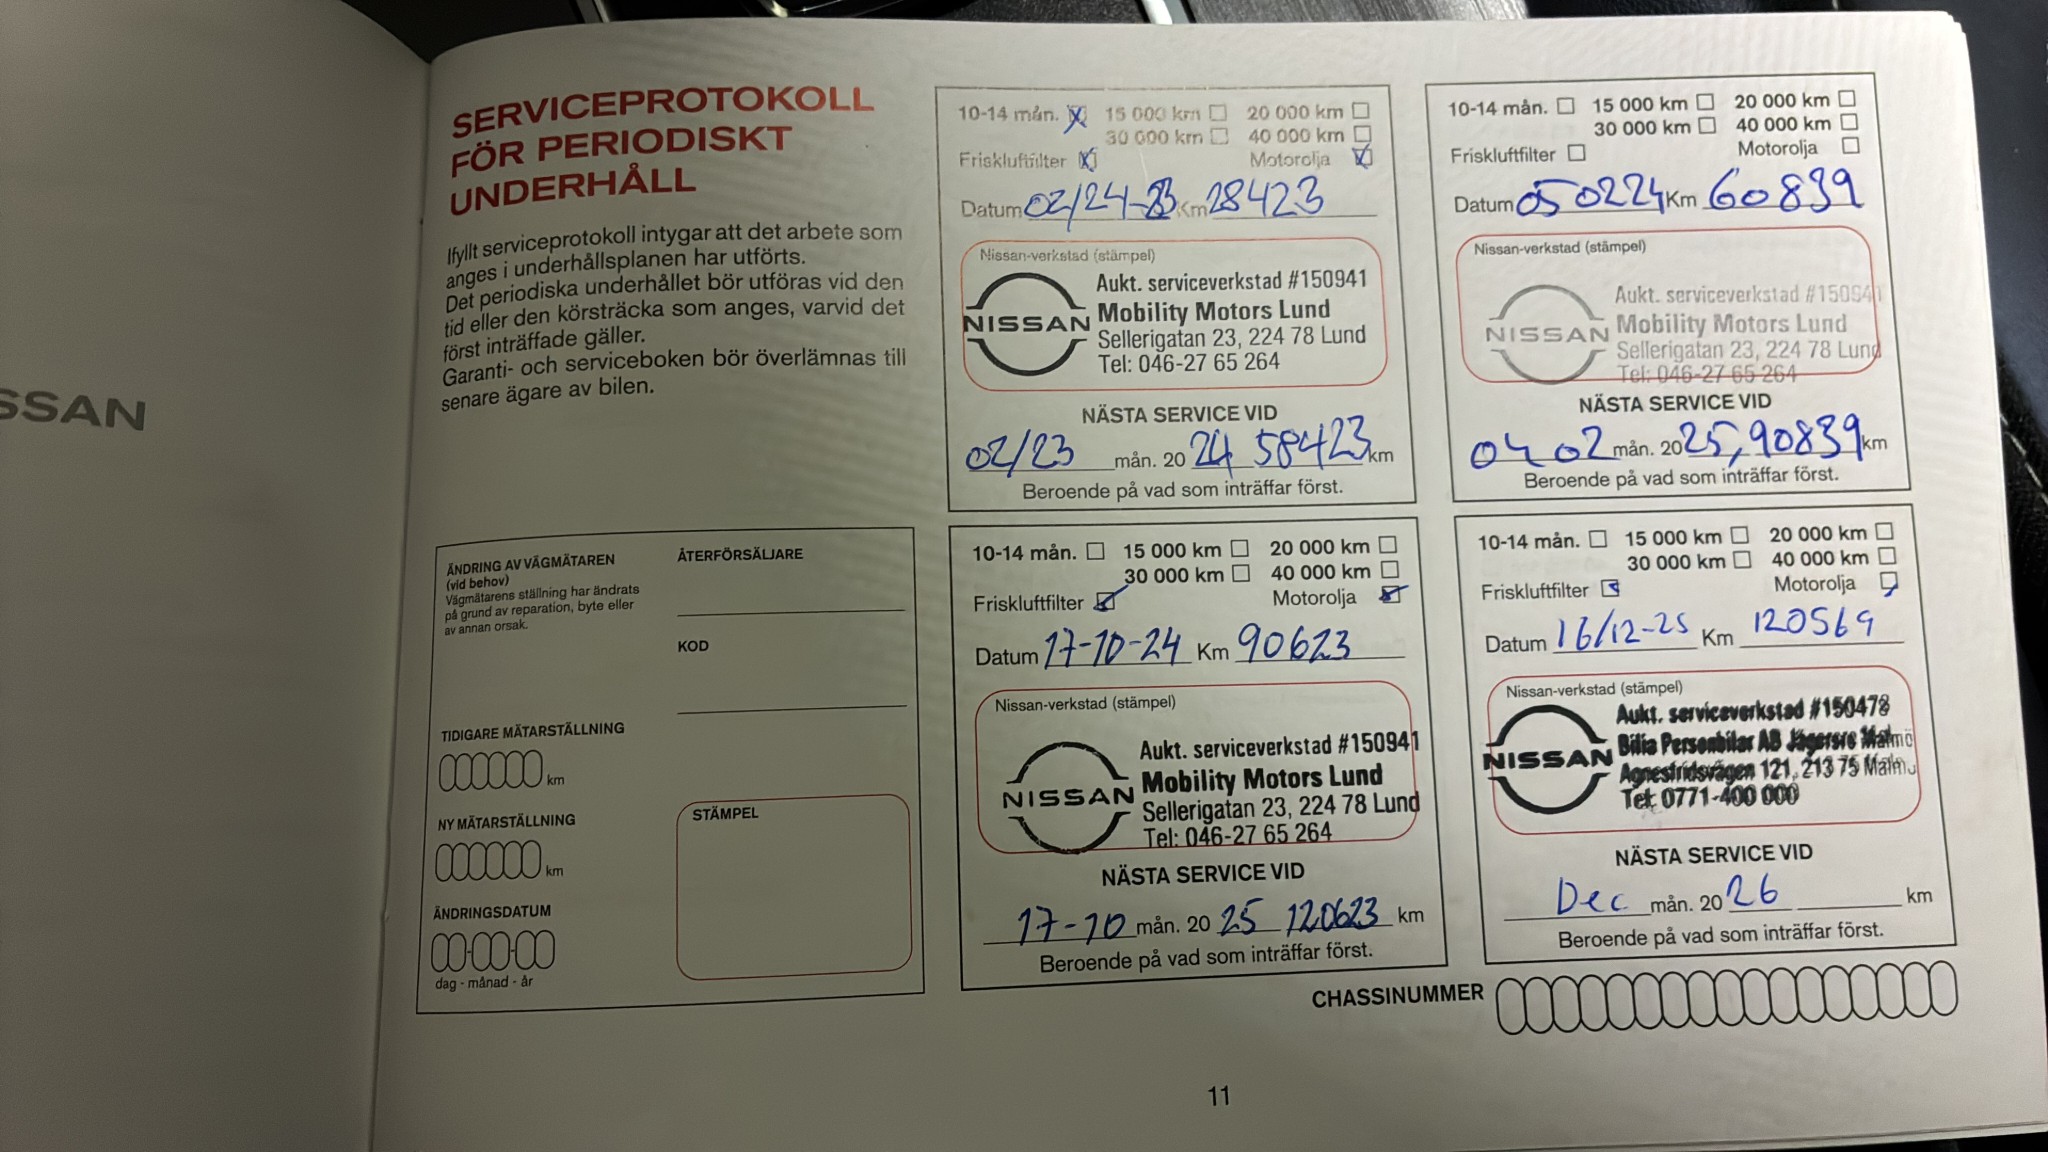 SSAN
SERVICEPROTOKOLL
FÖR PERIODISKT
UNDERHÅLL
Ifyllt serviceprotokoll intygar att det arbete som
anges i underhållsplanen har utförts.
Det periodiska underhållet bör utföras vid den
tid eller den körsträcka som anges, varvid det
först inträffade gäller.
Garanti- och serviceboken bör överlämnas till
senare ägare av bilen.
ÄNDRING AV VÄGMÄTAREN
(vid behov)
Vägmätarens ställning har ändrats
på grund av reparation, byte eller
av annan orsak.
ÅTERFÖRSÄLJARE
KOD
TIDIGARE MÄTARSTÄLLNING
km
NY MÄTARSTÄLLNING
km
ÄNDRINGSDATUM
dag - månad - år
STÄMPEL
10-14 mån. 15 000 km 20 000 km
30 000 km 40 000 km
Friskluftfilter Motorolja
Datum 02/24-23 Km 28423
Nissan-verkstad (stämpel)
NISSAN
Aukt. serviceverkstad #150941
Mobility Motors Lund
Sellerigatan 23, 224 78 Lund
Tel: 046-27 65 264
NÄSTA SERVICE VID
02/23 mån. 20 24 58423 km
Beroende på vad som inträffar först.
10-14 mån. 15 000 km 20 000 km
30 000 km 40 000 km
Friskluftfilter Motorolja
Datum 050224 Km 60839
Nissan-verkstad (stämpel)
NISSAN
Aukt. serviceverkstad #150941
Mobility Motors Lund
Sellerigatan 23, 224 78 Lund
Tel: 046-27 65 264
NÄSTA SERVICE VID
04 02 mån. 20 25, 90839 km
Beroende på vad som inträffar först.
10-14 mån. 15 000 km 20 000 km
30 000 km 40 000 km
Friskluftfilter Motorolja
Datum 17-10-24 Km 90623
Nissan-verkstad (stämpel)
NISSAN
Aukt. serviceverkstad #150941
Mobility Motors Lund
Sellerigatan 23, 224 78 Lund
Tel: 046-27 65 264
NÄSTA SERVICE VID
17-10 mån. 20 25 120623 km
Beroende på vad som inträffar först.
10-14 mån. 15 000 km 20 000 km
30 000 km 40 000 km
Friskluftfilter Motorolja
Datum 16/12-25 Km 120569
Nissan-verkstad (stämpel)
NISSAN
Aukt. serviceverkstad #150478
Bilia Personbilar AB Jägersro Malmö
Agnesfridsvägen 121, 213 75 Malmö
Tel: 0771-400 000
NÄSTA SERVICE VID
Dec mån. 20 26 km
Beroende på vad som inträffar först.
CHASSINUMMER
11